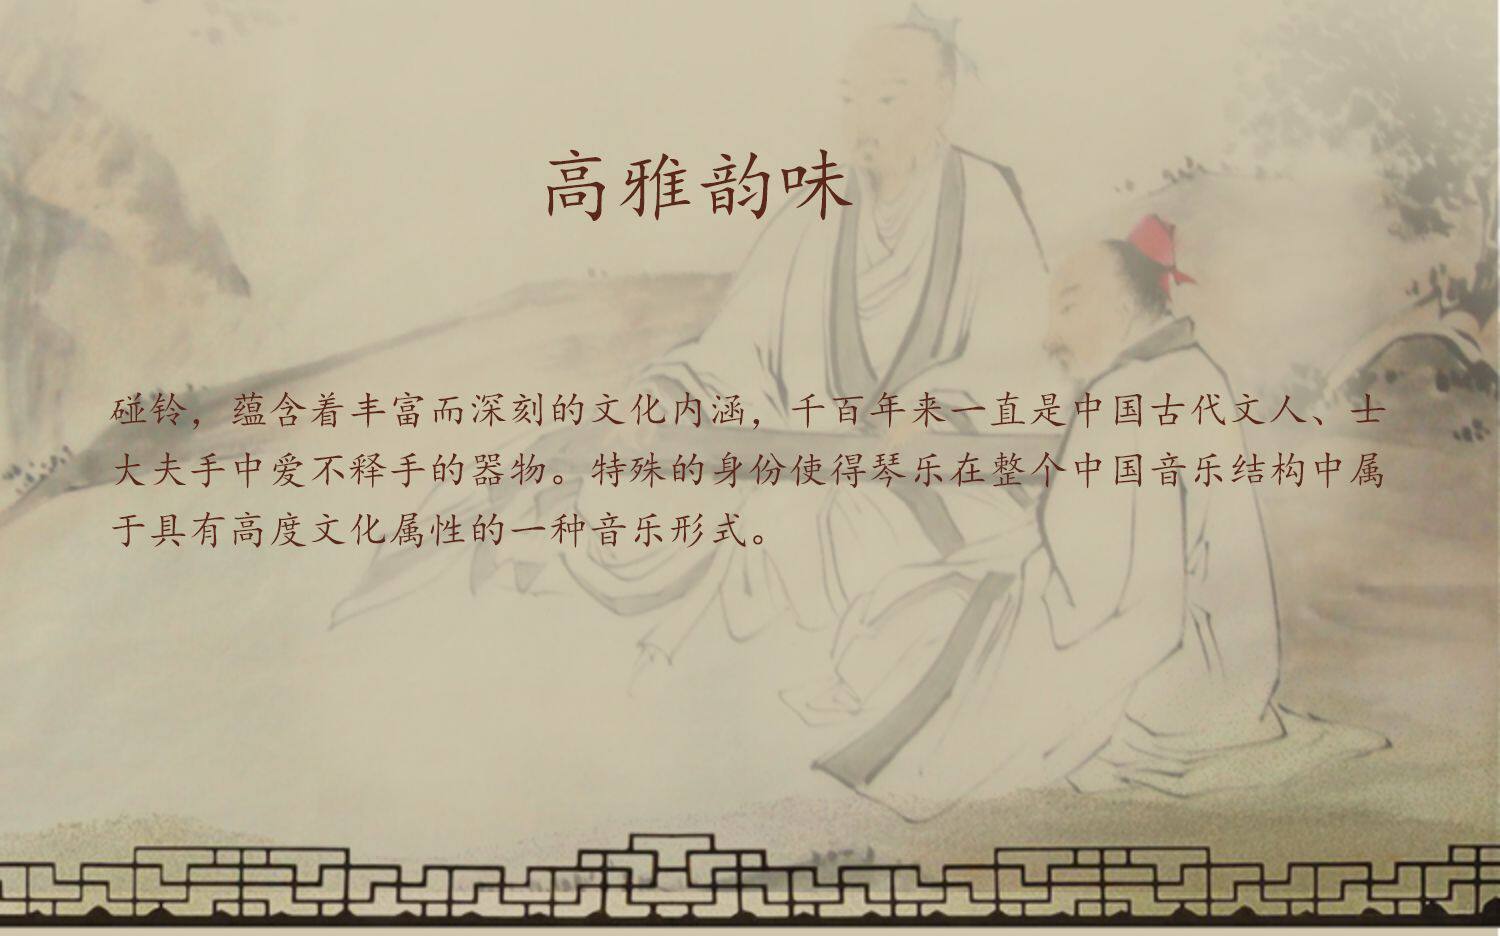 高雅韵味
碰铃，蕴含着丰富而深刻的文化内涵，千百年来一直是中国古代文人、士
大夫手中爱不释手的器物。特殊的身份使得琴乐在整个中国音乐结构中属
于具有高度文化属性的一种音乐形式。